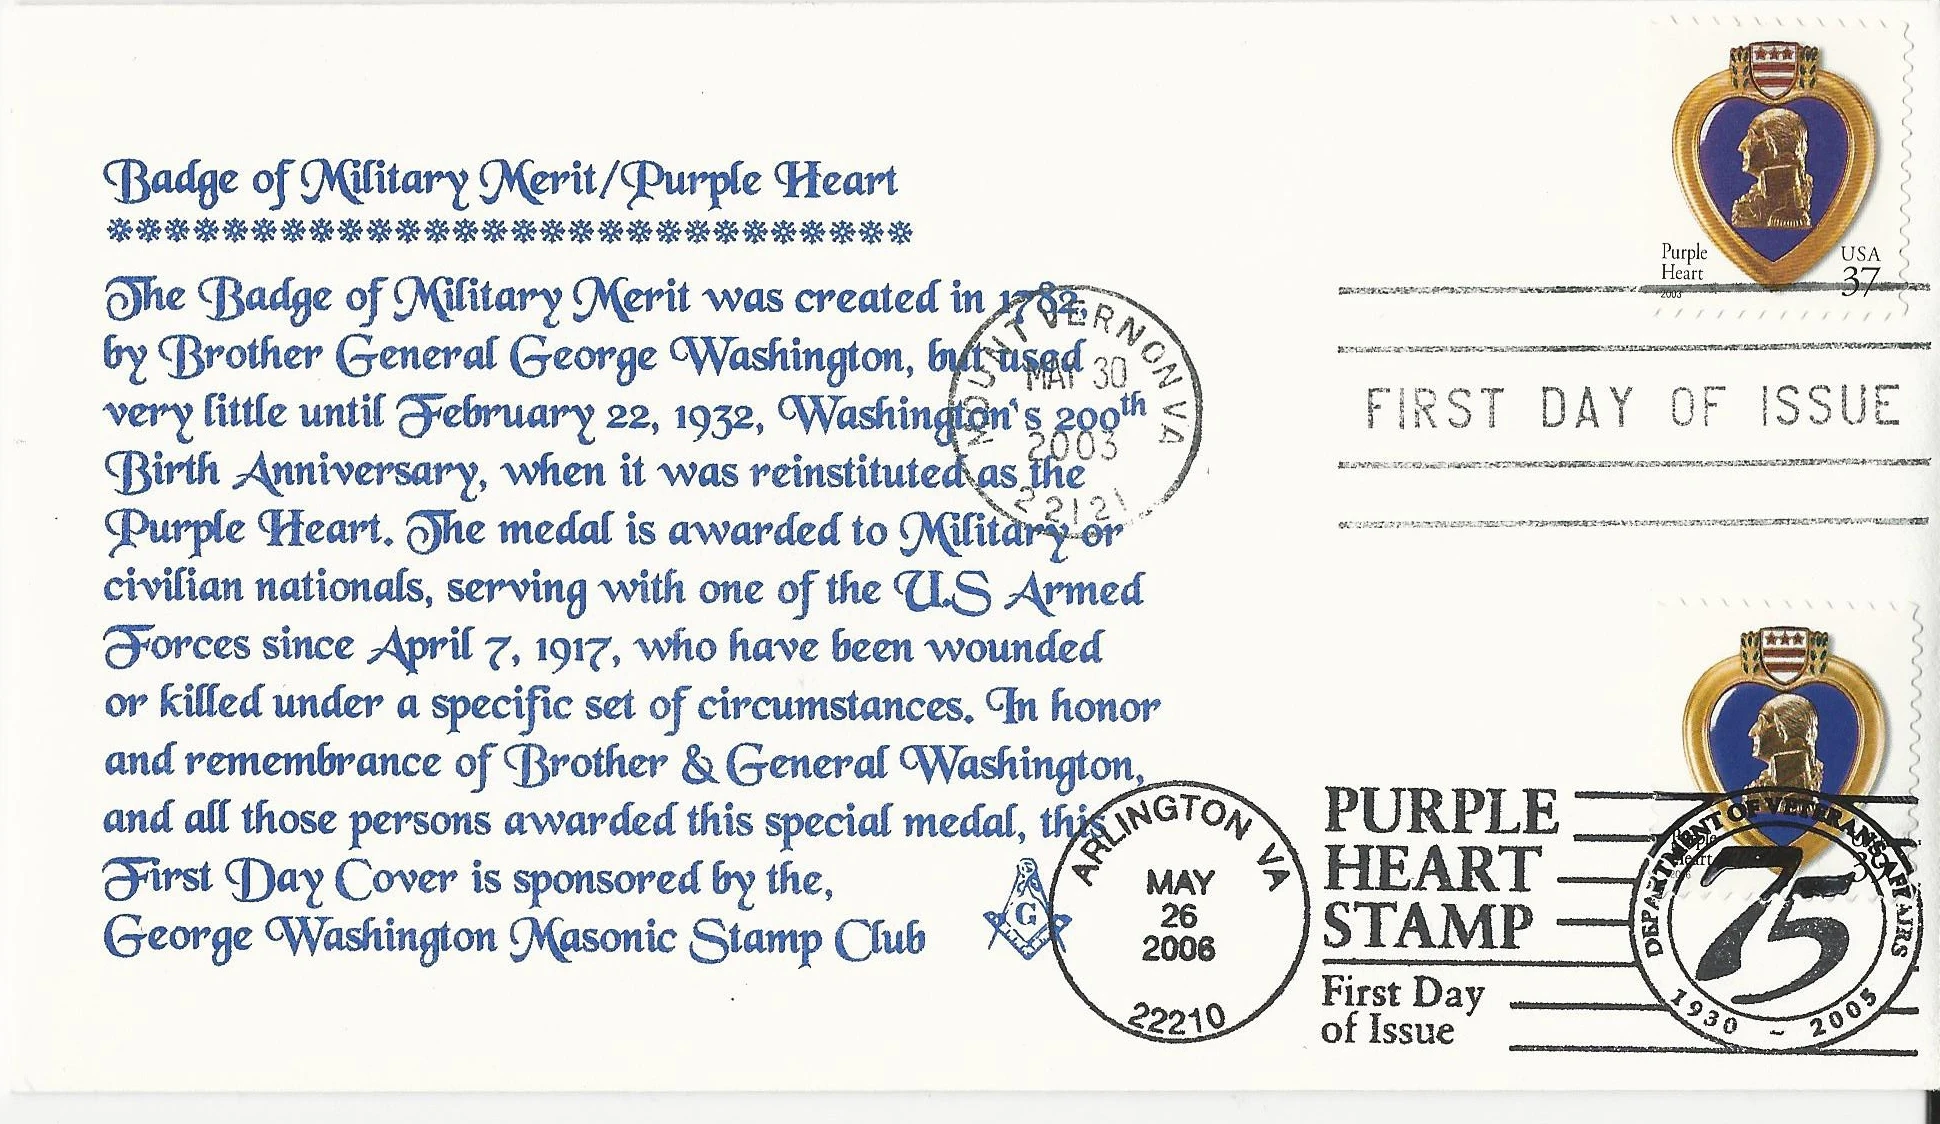 Badge of Military Merit/Purple Heart
❄❄❄❄❄❄❄❄❄❄❄❄❄❄❄❄❄❄❄❄❄❄❄❄❄❄❄❄
The Badge of Military Merit was created in 1782,
by Brother General George Washington, but used
very little until February 22, 1932, Washington's 200th
Birth Anniversary, when it was reinstituted as the
Purple Heart. The medal is awarded to Military or
civilian nationals, serving with one of the U.S Armed
Forces since April 7, 1917, who have been wounded
or killed under a specific set of circumstances. In honor
and remembrance of Brother & General Washington,
and all those persons awarded this special medal, this
First Day Cover is sponsored by the,
George Washington Masonic Stamp Club
G
MOUNT VERNON VA
MAY 30
2003
22121
Purple
Heart
2003
USA
37
FIRST DAY OF ISSUE
ARLINGTON VA
MAY
26
2006
22210
PURPLE
HEART
STAMP
First Day
of Issue
Purple
Heart
DEPARTMENT OF VETERANS AFFAIRS
75
1930 - 2005